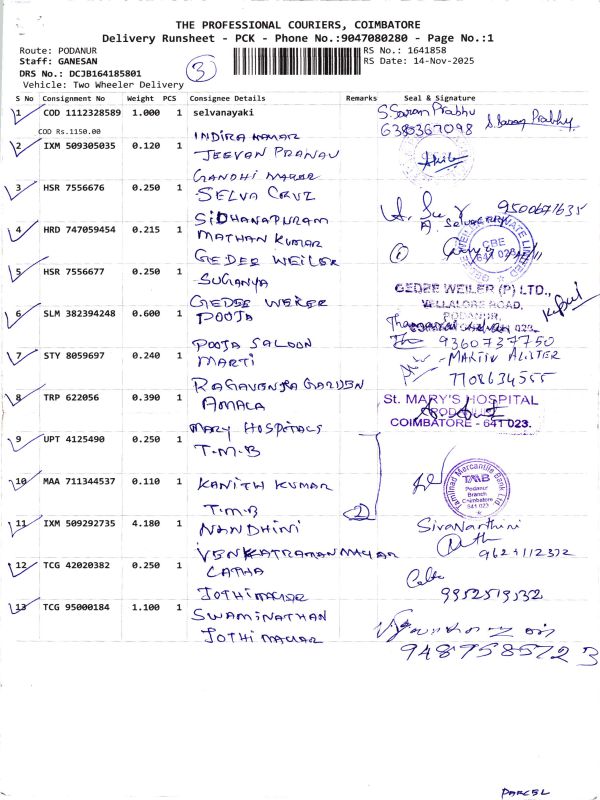 THE PROFESSIONAL COURIERS, COIMBATORE
Delivery Runsheet - PCK - Phone No.:9047080280 - Page No.:1
Route: PODANUR
RS No.: 1641858
Staff: GANESAN
RS Date: 14-Nov-2025
DRS No.: DCJB164185801
3
Vehicle: Two Wheeler Delivery
S No Consignment No Weight PCS Consignee Details Remarks Seal & Signature
1 COD 1112328589 1.000 1 selvanayaki S. Saran Prabhu
COD Rs.1150.00 6385367098 S. Saran Prabhu
INDIRA NAGAR
2 IXM 509305035 0.120 1 JEEVAN PRANAV
GANDHI NAGAR
3 HSR 7556676 0.250 1 SELVA CRUZ 9500671635
SIDHANAPURAM
4 HRD 747059454 0.215 1 MATHAN KUMAR
GEDEE WEILER
CBE
641 023
5 HSR 7556677 0.250 1 SUGANYA
GEDEE WEILER (P) LTD.,
VELLALORE ROAD,
PODANUR,
GEDEE WEILER
6 SLM 382394248 0.600 1 POOJA
POOJA SALOON 9360737750
7 STY 8059697 0.240 1 MARTI
7708634555
RAGAVENDRA GARDEN
8 TRP 622056 0.390 1 AMALA
St. MARY'S HOSPITAL
PODANUR
COIMBATORE - 641 023.
MARY HOSPITALS
9 UPT 4125490 0.250 1 T.M.B
10 MAA 711344537 0.110 1 KANITH KUMAR
Tamilnad Mercantile Bank Ltd
TMB
Podanur
Branch
Coimbatore
641 023
T.M.B 2
11 IXM 509292735 4.180 1 NANDHINI
VENKATRAMAN NAGAR
12 TCG 42020382 0.250 1 LATHA
JOTHI NAGAR
13 TCG 95000184 1.100 1 SWAMINATHAN
JOTHI NAGAR
PARCEL